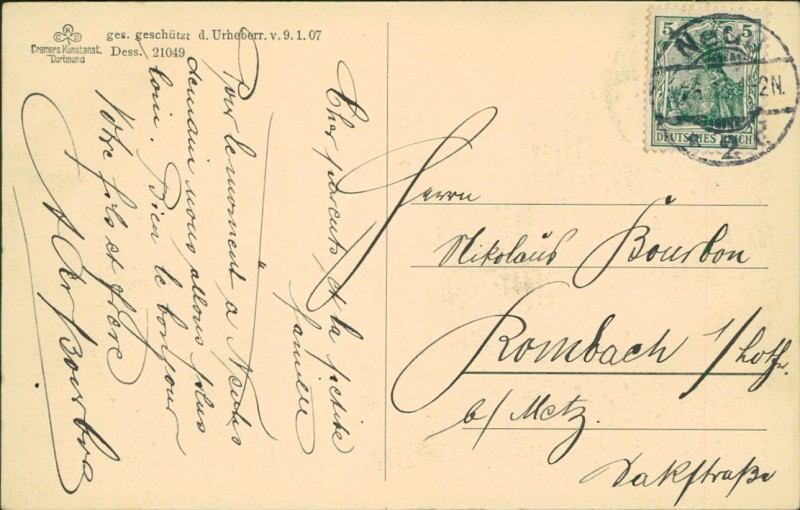 Cramers Kunstanst.
Dortmund
ges. geschützt d. Urheberr. v. 9.1.07
Dess. 21049
Cher parents et la petite
famille
Pour le moment a Neuss
demain nous allons plus
loin. Bien le bonjour
Votre fils et frère
Bourbon
5 5
DEUTSCHES REICH
2N.
Herrn
Nikolaus Bourbon
Rombach i/Lothr.
b/ Metz.